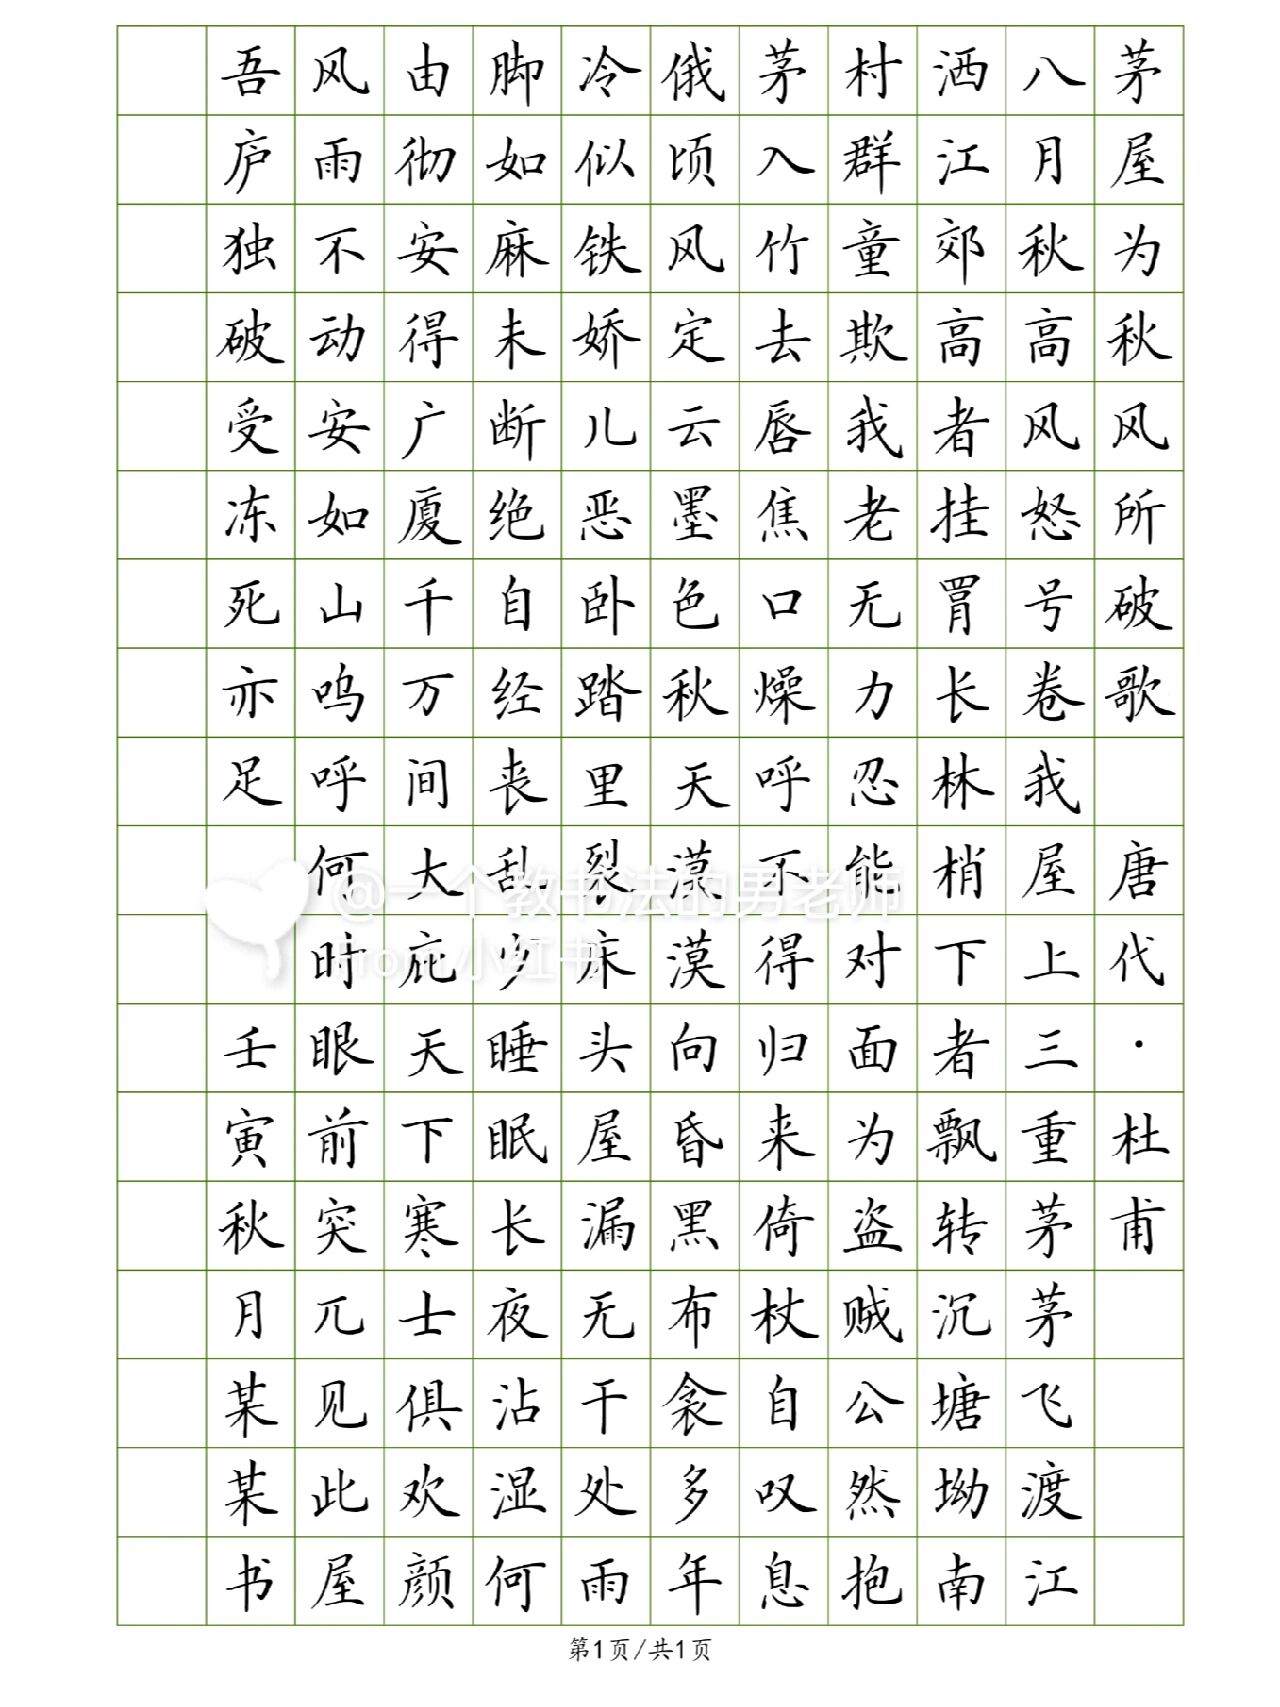 茅屋为秋风所破歌 唐代·杜甫
八月秋高风怒号卷我屋上三重茅茅飞渡江
洒江郊高者挂罥长林梢下者飘转沉塘坳南
村群童欺我老无力忍能对面为盗贼公然抱
茅入竹去唇焦口燥呼不得归来倚杖自叹息
俄顷风定云墨色秋天漠漠向昏黑布衾多年
冷似铁娇儿恶卧踏里裂床头屋漏无干处雨
脚如麻未断绝自经丧乱少睡眠长夜沾湿何
由彻安得广厦千万间大庇天下寒士俱欢颜
风雨不动安如山呜呼何时眼前突兀见此屋
吾庐独破受冻死亦足 壬寅秋月某某书
@一个教书法的男老师
From 小红书
第1页/共1页